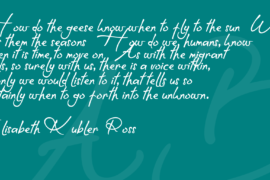 How do the geese know when to fly to the sun W
them the seasons How do we, humans, know
en it is time, to move on, As with the migrant
s, so surely with us, there is a voice within,
only we would listen to it, that tells us so
tainly when to go forth into the unknown.
lisabeth Kubler Ross